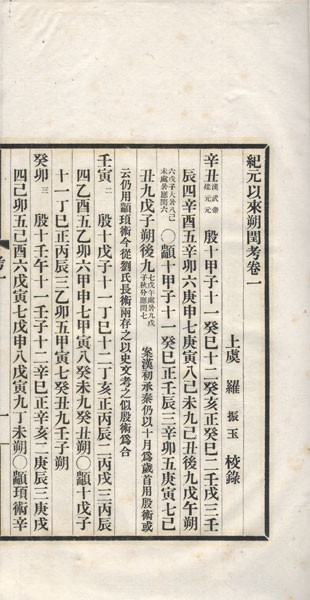 紀元以來朔閏考卷一
上虞羅振玉校錄
辛丑漢武帝建元元殷十甲子十一癸巳十二癸亥正癸巳二壬戌三壬
辰四辛酉五辛卯六庚申七庚寅八己未九己丑後九戊午朔
六戊子大暑八己未處暑應閏六○顓十甲子十一癸巳正壬辰三辛卯五庚寅七己
丑九戊子朔後九七戊午處暑九戊子秋分應閏七案漢初承秦仍以十月爲歲首用殷術或
云仍用顓頊術今從劉氏長術兩存之以史文考之似殷術爲合
壬寅二殷十戊子十一丁巳十二丁亥正丙辰二丙戌三丙辰
四乙酉五乙卯六甲申七甲寅八癸未九癸丑朔○顓十戊子
十一丁巳正丙辰三乙卯五甲寅七癸丑九壬子朔
癸卯三殷十壬午十一壬子十二辛巳正辛亥二庚辰三庚戌
四己卯五己酉六戊寅七戊申八戊寅九丁未朔○顓頊術辛